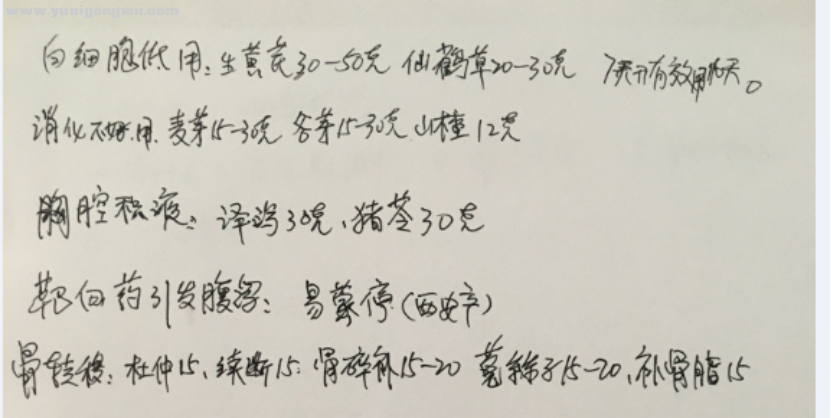 www.yunigongwu.com
白细胞低用:生黄芪30-50克 仙鹤草20-30克 7天有效用10天。
消化不好用.麦芽15-30克 谷芽15-30克 山楂12克
胸腔积液:译泻30克、猪苓30克
靶向药引发腹泻:易蒙停(西安辛)
骨转移:杜仲15、续断15.骨碎补15-20 菟絲子15-20、补骨脂15